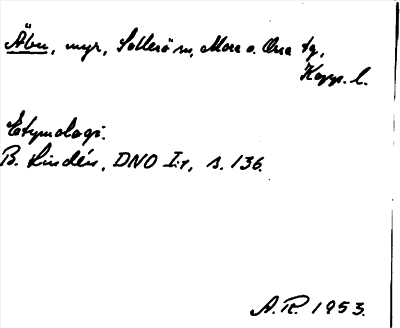 Åbu, myr, Sollerö sn, Mora o. Orsa tg,
Kopp. l.
Etymologi.
B. Lindén, DNO I:1, s. 136.
A.R. 1953.